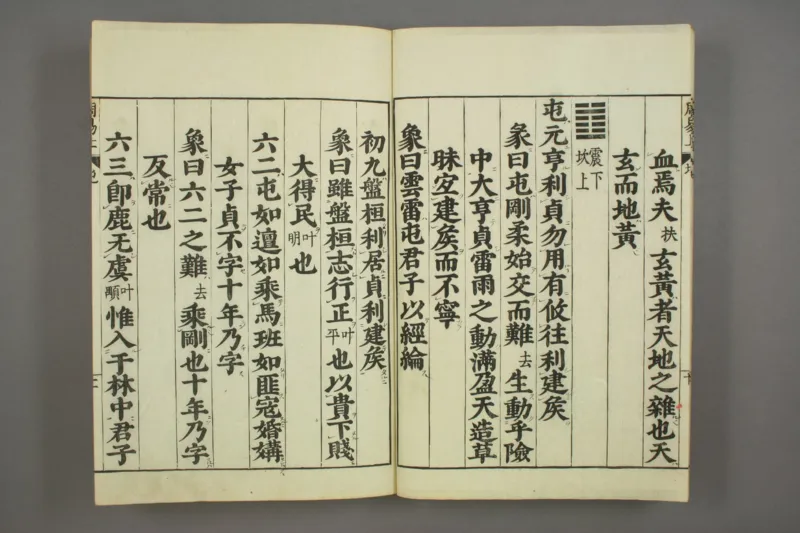 血焉夫扶玄黃者天地之雜也天
玄而地黃
震下
坎上
屯元亨利貞勿用有攸往利建矦
彖曰屯剛柔始交而難去生動乎險
中大亨貞雷雨之動滿盈天造草
昧宜建矦而不寧
象曰雲雷屯君子以經綸
初九盤桓利居貞利建矦
象曰雖盤桓志行正叶平也以貴下賤
大得民叶明也
六二屯如邅如乘馬班如匪寇婚媾
女子貞不字十年乃字
象曰六二之難去乘剛也十年乃字
反常也
六三卽鹿无虞惟入于林中君子
周易上